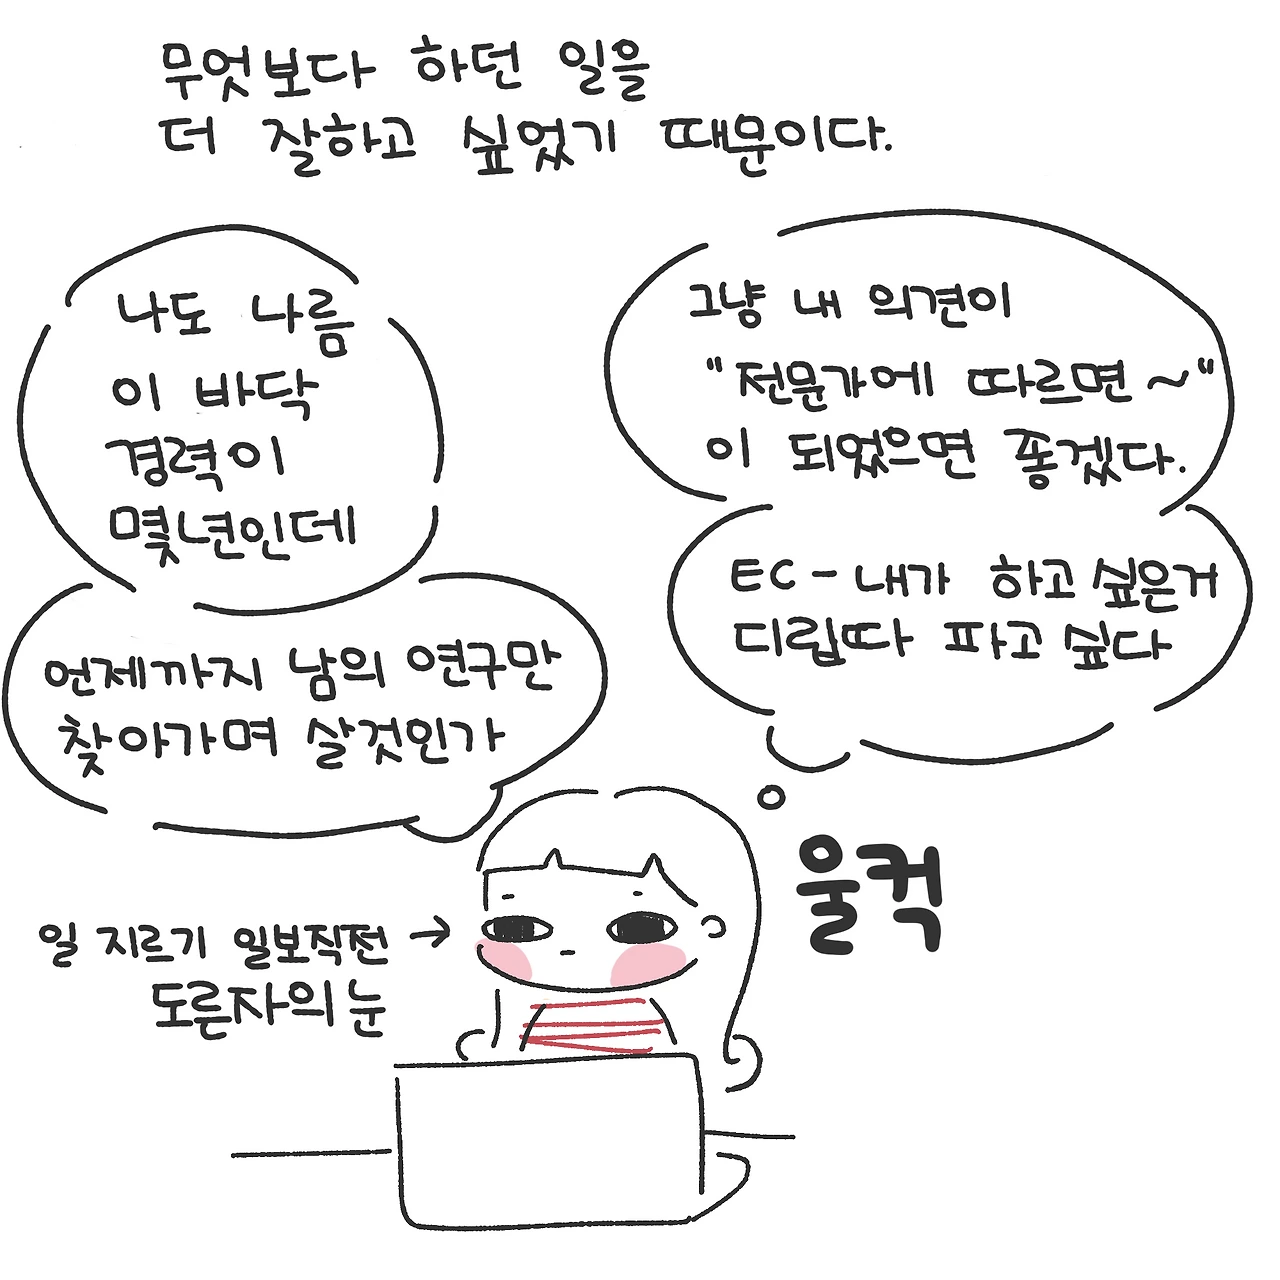 무엇보다 하던 일을
더 잘하고 싶었기 때문이다.
나도 나름
이 바닥
경력이
몇년인데
언제까지 남의 연구만
찾아가며 살것인가
그냥 내 의견이
"전문가에 따르면~"
이 되었으면 좋겠다.
EC - 내가 하고 싶은거
디립따 파고 싶다
울컥
일 지르기 일보직전
도른자의 눈